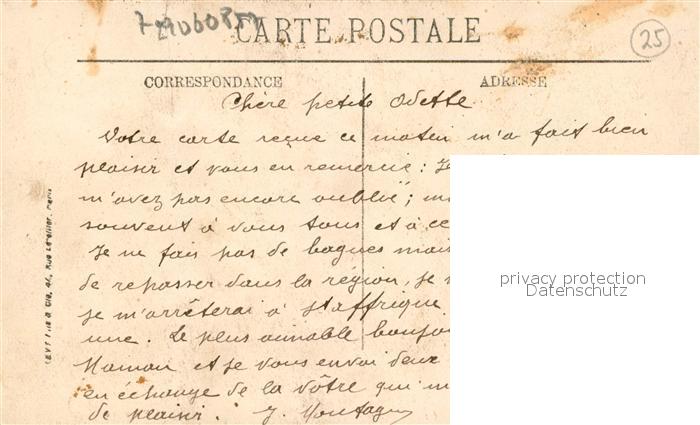 CARTE POSTALE
25
CORRESPONDANCE
ADRESSE
Chère petite Odette
Votre carte reçue ce matin m'a fait bien
plaisir et vous en remercie : Je
m'avez pas encore oublié ;
souvent à vous tous et à ce
Je ne fais pas de bagues mais
de repasser dans la région, je
je m'arrêterai à St affrique
une. Le plus aimable bonjour
Maman et je vous envoi deux
en échange de la vôtre qui m
de plaisir. J.
privacy protection
Datenschutz